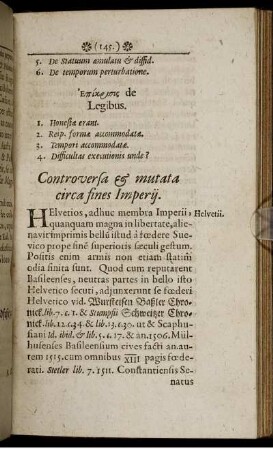 (145)
5. De Statuum æmulatu & diffid.
6. De temporum perturbatione.
Ἐπίκρισις de
Legibus.
1. Honestæ erant.
2. Reip. formæ accommodatæ.
3. Tempori accommodatæ.
4. Difficultas executionis unde?
Controversa & mutata
circa fines Imperij.
HElvetios, adhuc membra Imperii, Helvetii.
quanquam magna in libertate, alie-
navit imprimis belli istud à fœdere Sue-
vico prope finē superioris sæculi gestum.
Positis enim armis non etiam statim
odia finita sunt. Quod cum reputarent
Basileenses, neutras partes in bello isto
Helvetico secuti, adjunxerunt se fœderi
Helvetico vid. Wursteisen Baßler Chro-
nick. lib. 7. c. 1. & Stumpfii Schweitzer Chro-
nick. lib. 12. c. 34. & lib. 13. c. 30. ut & Scaphu-
siani Id. ibid. & lib. 5. c. 17. & an. 1506. Mül-
husenses Basileensium cives facti an. au-
tem 1515. cum omnibus XIII pagis fœde-
rati. Stetler lib. 7. 1511. Constantiensis Se-
natus